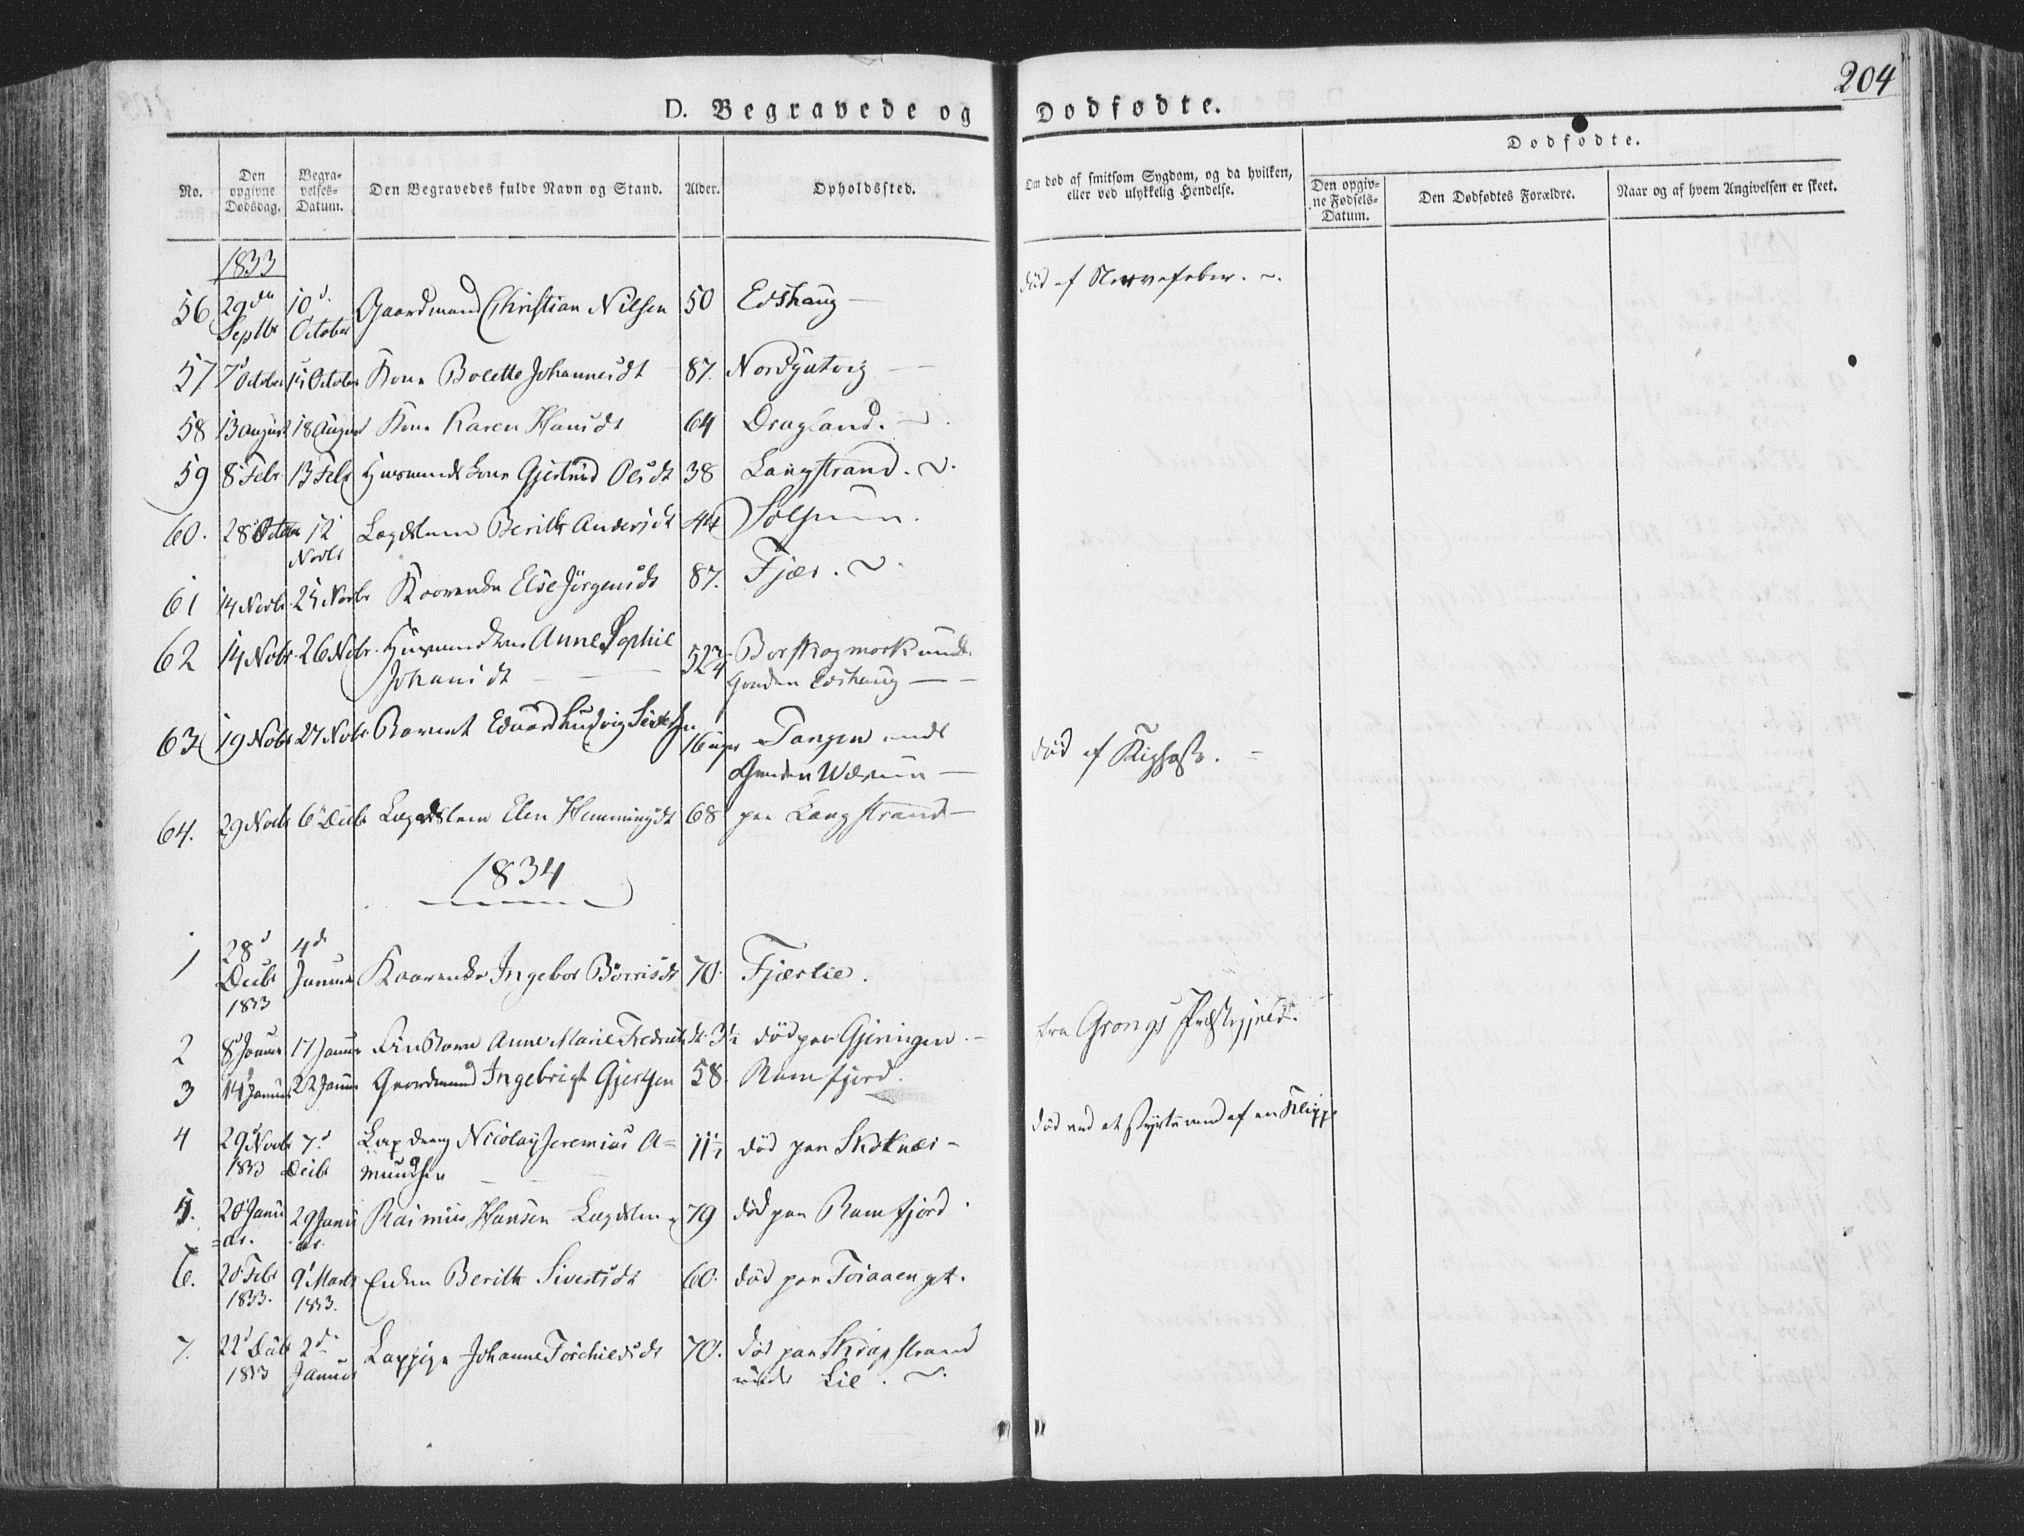 204
D. Begravede og Dødfødte.
Dødfødte.
No.
Den opgivne Dødsdag.
Begravelses-Datum.
Den Begravedes fulde Navn og Stand.
Alder.
Opholdssted.
Om død af smitsom Sygdom, og da hvilken, eller ved ulykkelig Hendelse.
Den opgivne Fødsels-Datum.
Den Dødfødtes Forældre.
Naar og af hvem Angivelsen er skeet.
1833
56 29de Septbr 10d October Gaardmand Christian Nilsen 50 Edshaug død af Nervefeber.
57 7d October 15 October Kone Bolette Johannesdt 87. Nordgutvig
58 13 August 18 August Kone Karen Hansdt 64 Dragland.
59 8 Febr. 13 Febr Husmands Kone Gjertrud Olsdt 38 Langstrand.
60. 28 October 12 Novbr Lægdslem Berith Andersdt 44 Solsem.
61 14 Novbr. 25 Novbr Kaarenke Else Jörgensdt 87. Fjær.
62 14 Nobr. 26 Nobr. Husmandskone Anne Sophie
Johansdt 52 3/4 Borskogmark under
Gaarden Edshaug
63 19 Nobr 27 Nobr Barnet Eduard Ludvig Sivertsen 16 uger Tangen under
Gaarden Wærum død af Kighoste.
64. 29 Novbr 6 Decbr Lægdslem Elen Hemmingsdt 68 paa Langstrand
1834
1 28d Decbr 1833 4d Januar Kaarenke Ingebor Börrisdt 70. Fjærlie.
2 8d Januar 17 Januar Finbarn Anne Marie Fredriksdt. 3 1/2 død paa Gjeringen. fra Grongs Præstegjeld.
3 14 Januar 22 Januar Gaardmand Ingebrigt Gjertsen 58. Ramfjord.
4 29d Novbr 1833 7d Decbr Lapdreng Nicolay Jeremias A=
mundsen 11 1/2 død paa Skotnæs død ved at styrte ned af en Klippe
5. 20 Janu=ar. 29 Januar. Rasmus Hansen Lægdslem 79 død paa Ramfjord.
6. 20 Febr 1833. 9d Marts 1833. Enken Berith Sivertsdt 60. død paa Foraaenget.
7. 22d Decbr 1833 2d Januar Lappige Johanne Torchildsdt 70. død paa Skrapstrand
under Lie.